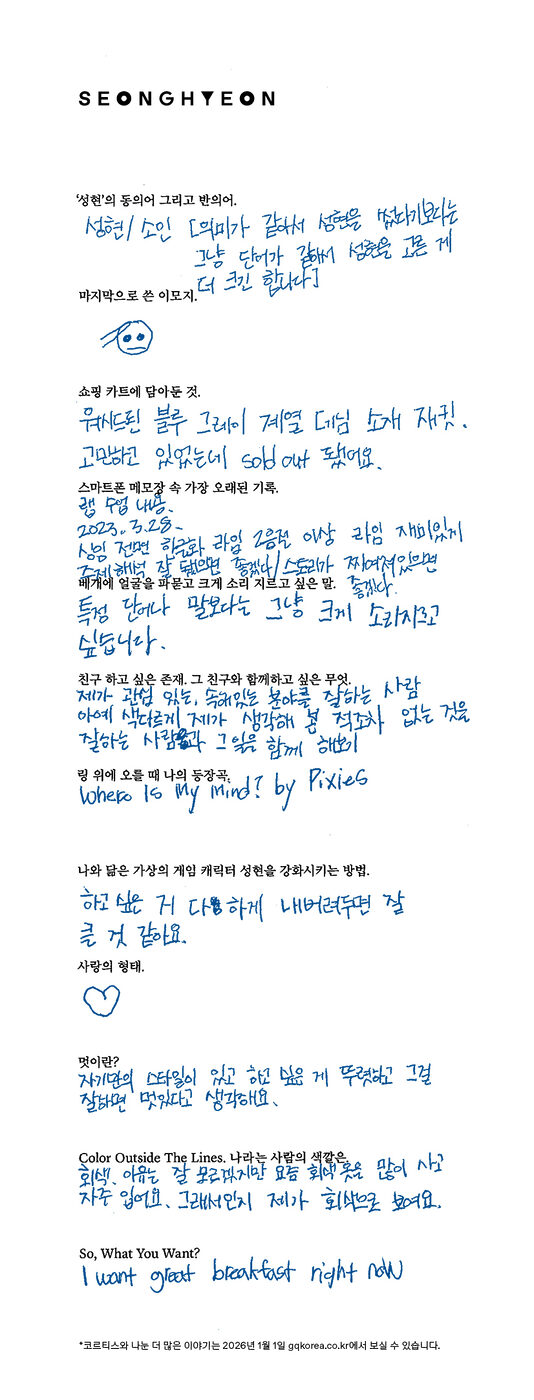 SEONGHYEON
'성현'의 동의어 그리고 반의어.
성현/소인 [의미가 같아서 성현을 썼다기보다는
그냥 단어가 같아서 성현을 고른 게
더 크긴 합니다]
마지막으로 쓴 이모지.
쇼핑 카트에 담아둔 것.
워시드된 블루 그레이 계열 데님 소재 재킷.
고민하고 있었는데 sold out 됐어요.
스마트폰 메모장 속 가장 오래된 기록.
랩 수업 내용.
2023. 3. 28.
전면 한글화 라임 2음절 이상 라임 재미있게
주제 해석 잘 됐으면 좋겠다/스토리가 짜여져있으면
좋겠다.
베개에 얼굴을 파묻고 크게 소리 지르고 싶은 말.
특정 단어나 말보다는 그냥 크게 소리지르고
싶습니다.
친구 하고 싶은 존재. 그 친구와 함께하고 싶은 무엇.
제가 관심 있는, 속해있는 분야를 잘하는 사람
아예 색다르게 제가 생각해 본 적조차 없는 것을
잘하는 사람과 그 일을 함께 해보기
링 위에 오를 때 나의 등장곡.
Where Is My Mind? by Pixies
나와 닮은 가상의 게임 캐릭터 성현을 강화시키는 방법.
하고 싶은 거 다 하게 내버려두면 잘
클 것 같아요.
사랑의 형태.
멋이란?
자기만의 스타일이 있고 하고 싶은 게 뚜렷하고 그걸
잘하면 멋있다고 생각해요.
Color Outside The Lines. 나라는 사람의 색깔은
회색. 이유는 잘 모르겠지만 요즘 회색 옷을 많이 사고
자주 입어요. 그래서인지 제가 회색으로 보여요.
So, What You Want?
I want great breakfast right now
*코르티스와 나눈 더 많은 이야기는 2026년 1월 1일 gqkorea.co.kr에서 보실 수 있습니다.